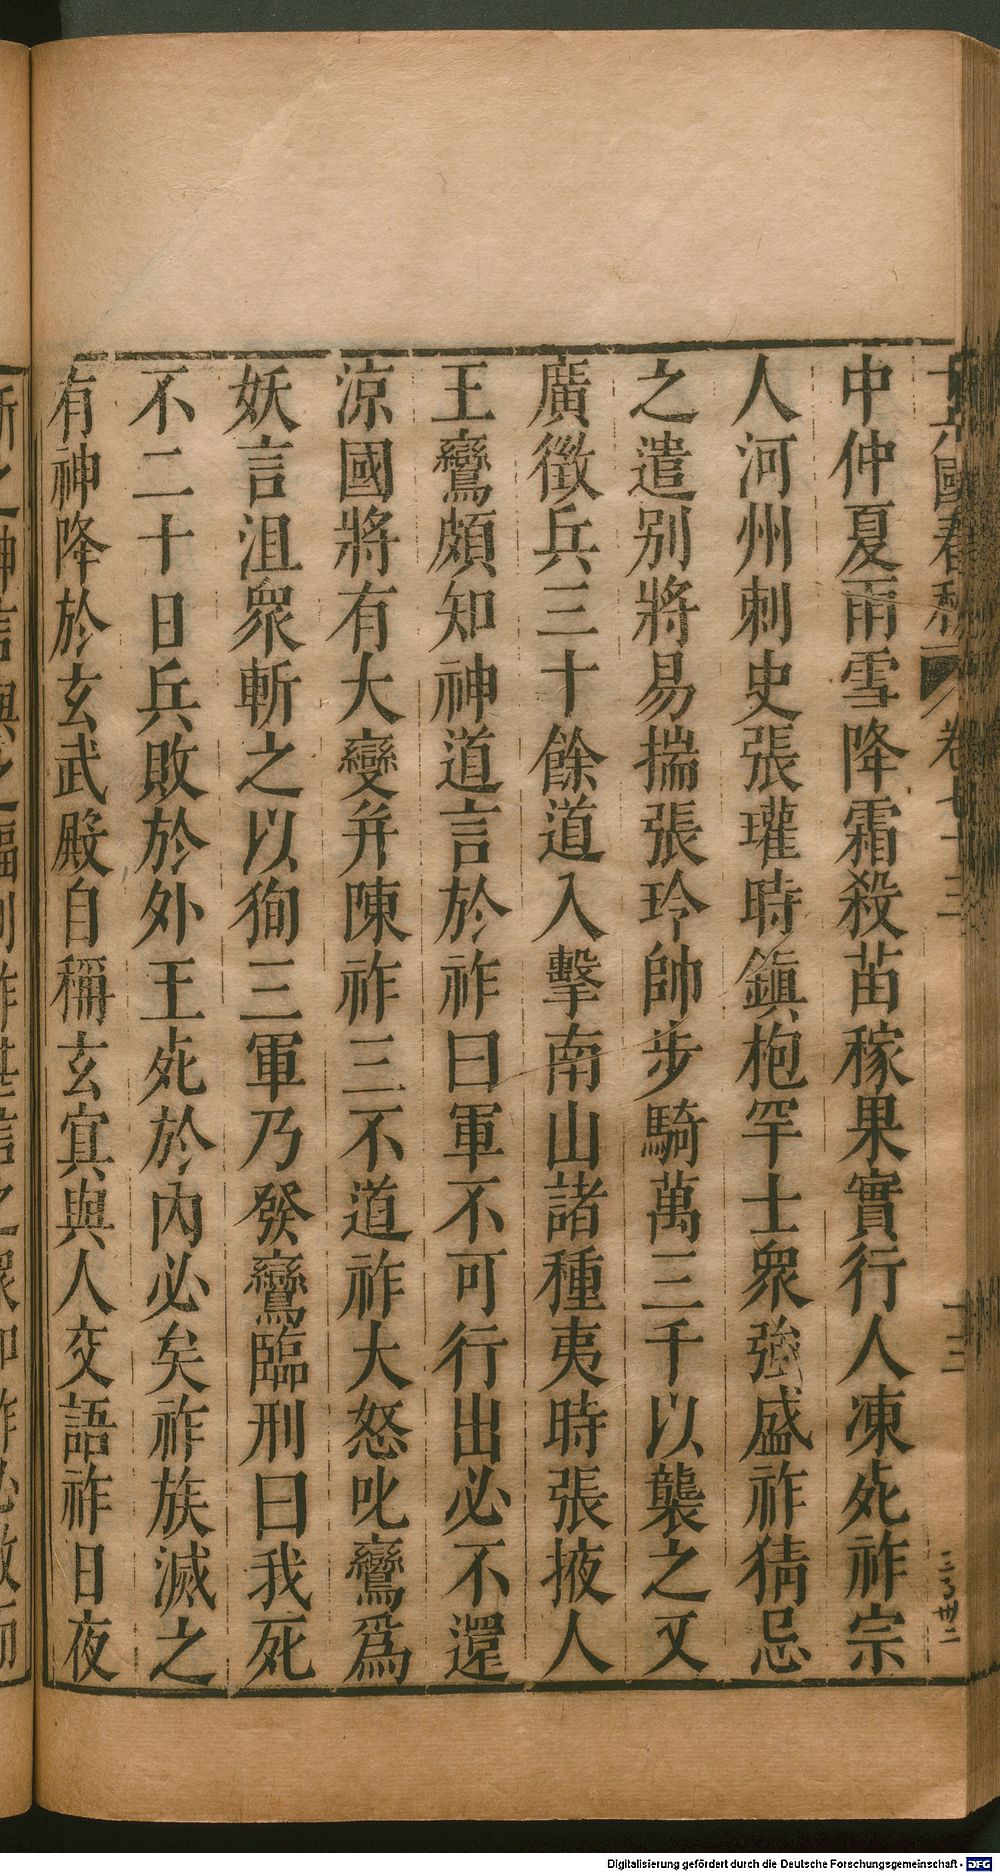 十六國春秋 卷七十三 十三
中仲夏雨雪降霜殺苗稼果實行人凍死祚宗
人河州刺史張瓘時鎮枹罕士眾強盛祚猜忌
之遣別將易揣張玲帥步騎萬三千以襲之又
廣徵兵三十餘道入擊南山諸種夷時張掖人
王鸞頗知神道言於祚曰軍不可行出必不還
涼國將有大變并陳祚三不道祚大怒叱鸞爲
妖言沮眾斬之以徇三軍乃發鸞臨刑曰我死
不二十日兵敗於外王死於內必矣祚族滅之
有神降於玄武殿自稱玄冥與人交語祚日夜
Digitalisierung gefördert durch die Deutsche Forschungsgemeinschaft - DFG